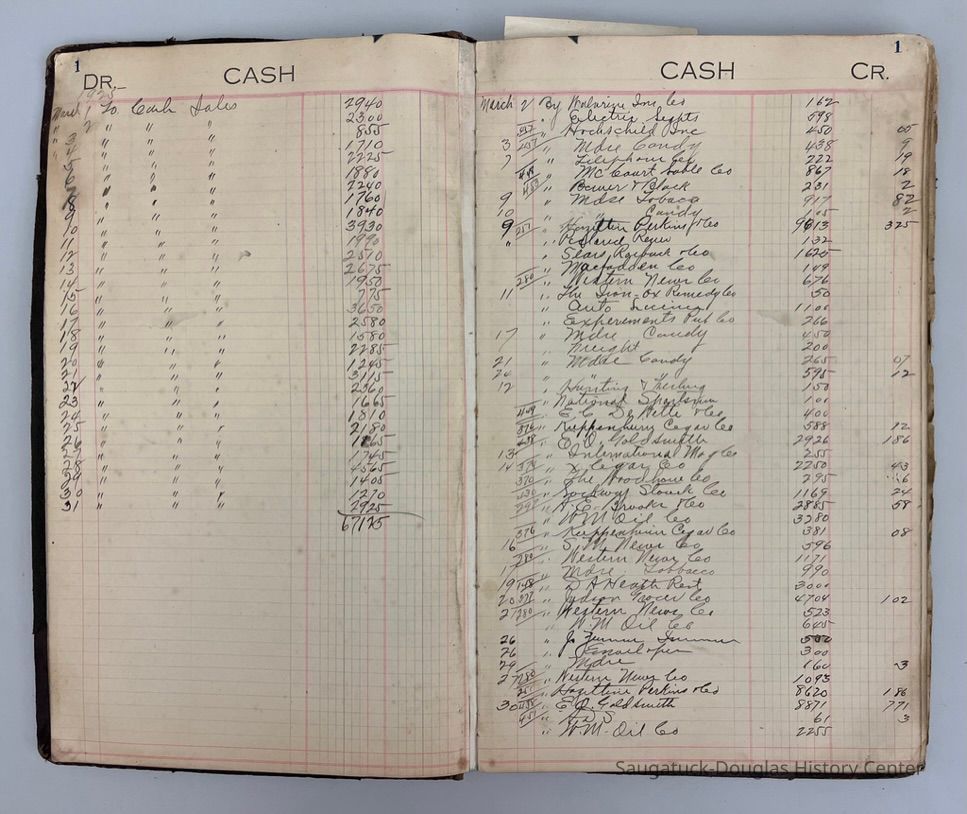 1
DR. CASH
1925
March 1 To Cash Sales 2940
" 2 " " " 2300
" 3 " " " 855
4 " " " 1710
5 " " " 2225
6 " " " 1880
7 " " " 2240
8 " " " 1760
9 " " " 1840
10 " " " 3930
11 " " " 1990
12 " " " 2570
13 " " " 2675
14 " " " 1950
15 " " " 775
16 " " " 3650
17 " " " 2580
18 " " " 1580
19 " " " 2285
20 " " " 1245
21 " " " 3115
22 " " " 2360
23 " " " 1665
24 " " " 1810
25 " " " 2180
26 " " " 1265
27 " " " 1745
28 " " " 4565
29 " " " 1405
30 " " " 1270
31 " " " 2925
67125
1
CASH CR.
March 2 By Ins Co 162
" Electric Lights 598
" Hochschild Inc 450 05
3 " Mdse Candy 438 9
7 " Telephone Co 222 19
" McCourt Co 867 18
" Bauer & Black 231 2
9 " Mdse Tobacco 917 82
10 " " Candy 2
9 257 " Hazeltine Perkins & Co 9613 325
" " 132
" Sears Roebuck & Co 1625
" Macfadden Co 149
280 " Western News Co 676
11 " The Iron-Ox Remedy Co 50
" Auto 1100
" Experimenter Pub Co 266
17 " Mdse Candy 450
" Freight 200
21 " Mdse Candy 265 07
24 " " " 595 12
12 " Hunting & Fishing 150
" National Sportsman 100
" E. C. & Co 400
376 " Kuppenheimer Cigar Co 588 12
" E. O. Goldsmith 2926 186
13 " International Mag Co 255
14 " Cigar Co 2250 43
370 " The Woodhouse Co 295
" Co 1169 24
" Brooks & Co 2885 58
" W.M. Oil Co 3280
376 " Kuppenheimer Cigar Co 381 08
16 " S.W. News Co 596
280 " Western News Co 1171
" Mdse Tobacco 990
19 " D A Heath Rent 3000
20 " Judson Grocer Co 4704 102
21 280 " Western News Co 523
" W.M Oil Co 645
26 " J. 500
26 " 300
29 " Mdse 160 3
27 280 " Western News Co 1093
257 " Hazeltine Perkins & Co 8620 186
30 " E.O. Goldsmith 8871 771
" 61 3
" W.M. Oil Co 2255
Saugatuck-Douglas History Center